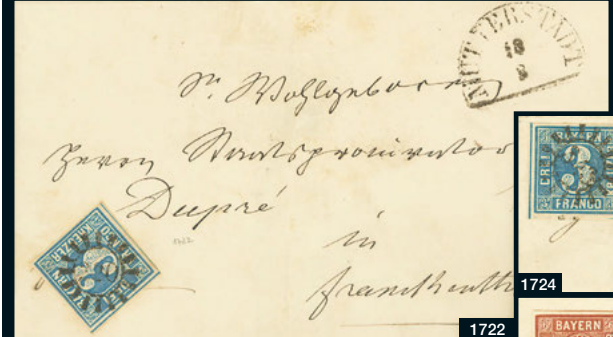 MUTTERSTADT
18
8
Sr. Wohlgeboren
Herrn Staatsprocurator
Dupré
in
Frankenth
1722
KREUZER
FRANCO
3
FRANCO
1724
1722
BAYERN